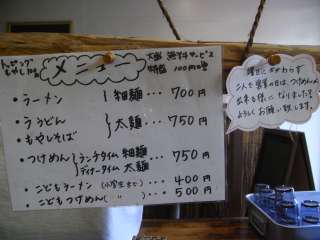 トッピング
もやし 100
メニュー
大盛 無料サービス
特盛 100円増
・ラーメン 細麺 … 700円
・うどん
・もやしそば 太麺 … 750円
・つけめん ランチタイム 細麺
ディナータイム 太麺 … 750円
・こどもラーメン (小学生まで) … 400円
・こどもつけめん ( 〃 ) … 500円
曜日にかかわらず
二人で営業の日は、つけめんの
出来る様に なりました!
よろしく お願い致します。